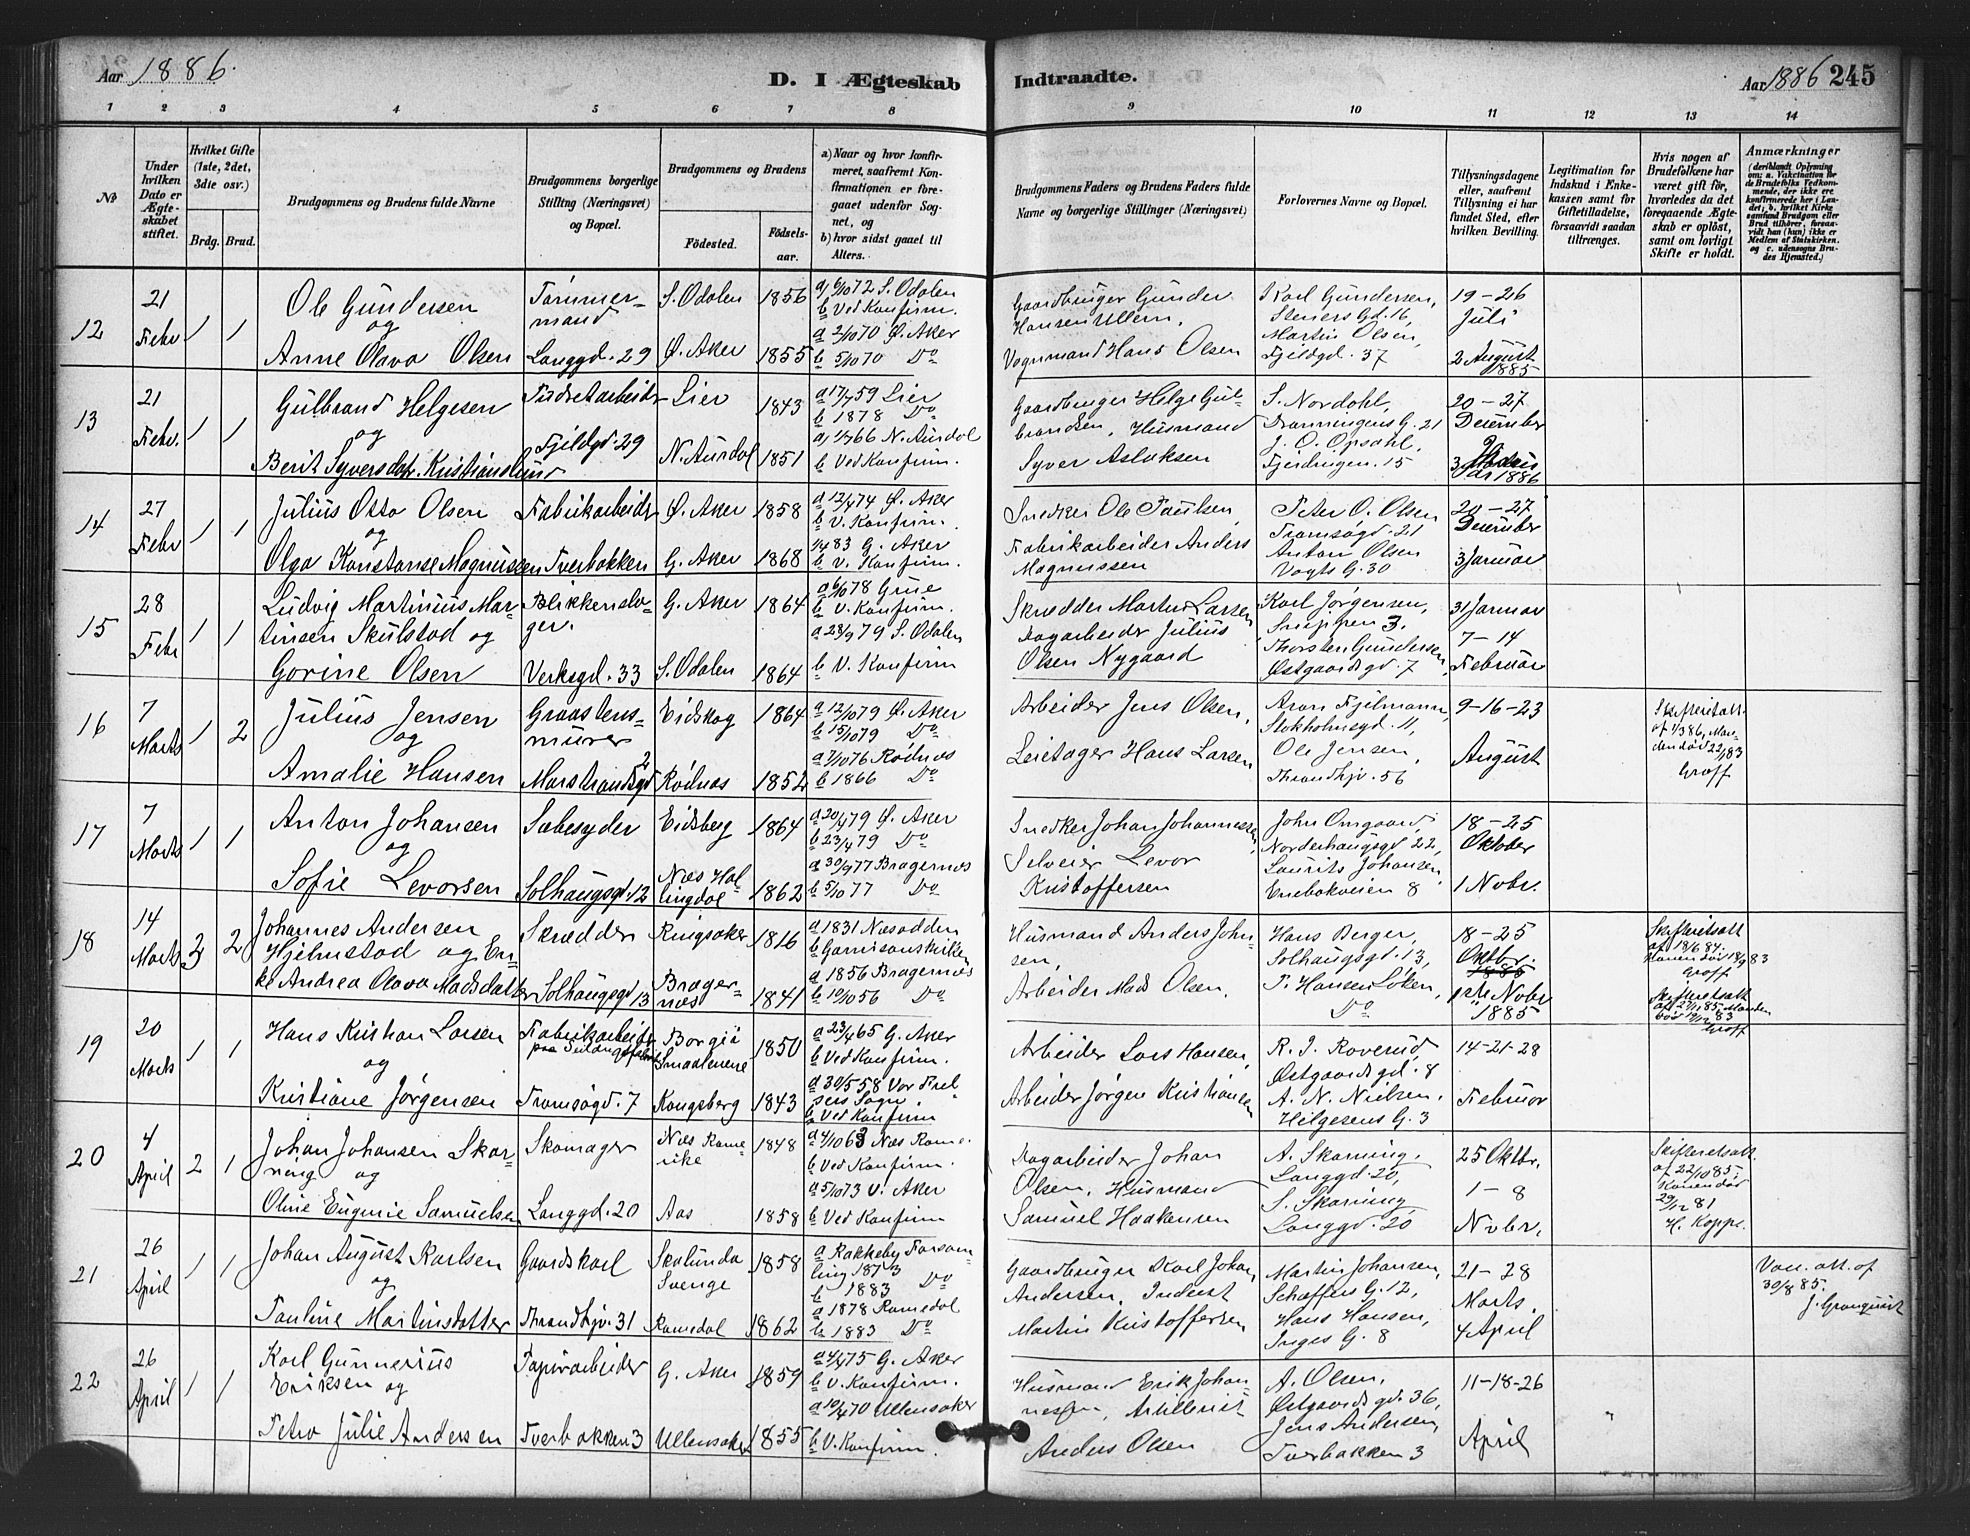 Aar 1886. D. I Ægteskab Indtraadte. Aar 1886 245
1 2 3 4 5 6 7 8 9 10 11 12 13 14
No
Under hvilken Dato er Ægteskabet stiftet.
Hvilket Gifte (1ste, 2det, 3die osv.)
Brdg. Brud.
Brudgommens og Brudens fulde Navne
Brudgommens borgerlige Stilling (Næringsvei) og Bopæl.
Brudgommens og Brudens
Fødested. Fødsels-aar.
a) Naar og hvor konfirmeret, saafremt Konfirmationen er foregaaet udenfor Sognet, og
b) hvor sidst gaaet til Alters.
Brudgommens Faders og Brudens Faders fulde Navne og borgerlige Stillinger (Næringsvei)
Forlovernes Navne og Bopæl.
Tillysningsdagene eller, saafremt Tillysning ei har fundet Sted, efter hvilken Bevilling.
Legitimation for Indskud i Enkekassen samt for Giftetilladelse, forsaavidt saadan tiltrænges.
Hvis nogen af Brudefolkene har været gift før, hvorledes da det foregaaende Ægteskab er opløst, samt om lovligt Skifte er holdt.
Anmærkninger (deriblandt Oplysning om: a. Vakcination for de Brudefolks Vedkommende, der ikke ere konfirmerede her i Landet; b. hvilket Kirkesamfund Brudgom eller Brud tilhører, forsaavidt han (hun) ikke er Medlem af Statskirken. og c. udensogns Brudes Hjemsted.)
12 21 Febr 1 1
Ole Gundersen og Anne Olava Olsen
Tømmermand Langgd. 29
S. Odalen 1856
Ø. Aker 1855
a 6/10 72 S. Odalen
b Ved Konfirm.
a 2/10 70 Ø. Aker
b 5/10 70 Do
Gaardbruger Gunder Hansen Ullern,
Vognmand Hans Olsen
Karl Gundersen, Steners Gd. 16,
Martin Olsen, Fjeldgd. 37
19-26 Juli
2 August 1885
13 21 Febr. 1 1
Gulbrand Helgesen og
Berit Syversdatr. Kristianslund
Fjeldgd 29
Lier 1843
N. Aurdal 1851
a 17/7 59 Lier
b 1878 Do
a 1/7 66 N. Aurdal
b Ved Konfirm.
Gaardbruger Helge Gulbrandsen, Husmand
Syver Aslaksen
S. Nordahl, Dronningens G. 21
J. O. Opsahl, Fjerdingen. 15
20-27 December
1886
14 27 Febr 1 1
Julius Otto Olsen og
Olga Konstanse Magnussen
Fabrikarbeider Tverbakken
Ø. Aker 1858
G. Aker 1868
a 12/4 74 Ø. Aker
b V. Konfirm.
1/4 83 G. Aker
b V. Konfirm.
Snedker Ole Paulsen,
Fabrikarbeider Anders Magnussen
Peter O. Olsen Tromsøgd. 21
Anton Olsen Vogts G. 30
20-27 December
3 Januar
15 28 Febr 1 1
Ludvig Martinius Martinsen Skulstad og
Gorine Olsen
Blikkenslager. Verksgd. 33
G. Aker 1864
S. Odalen 1864
a 6/10 78 Grue
b V. Konfirm.
a 28/9 79 S. Odalen
b V. Konfirm
Skrædder Martin Larsen
Dagarbeider Julius Olsen Nygaard
Karl Jørgensen, Snippen 3.
Thorsten Gundersen, Østgaardsgd. 7
31 Januar
7-14 Februar
16 7 Marts 1 2
Julius Jensen og
Amalie Hansen
Graastensmurer Marstrandsgd 2
Eidskog 1864
Rødnæs 1852
a 12/10 79 Ø. Aker
b 15/10 79 Do
a 7/10 76 Rødnæs
b 1866 Do
Arbeider Jens Olsen,
Leietager Hans Larsen
Aron Fjelmann, Stokholmsgd. 11,
Ole Jensen, Throndhjv. 56
9-16-23 August
Skifteretsatt. af 1/3 86, Manden død 22/1 83
Graff
17 7 Marts 1 1
Anton Johansen og
Sofie Levorsen
Sæbesyder Solhaugsgd. 12
Eidsberg 1864
Næs Hallingdal 1862
a 20/4 79 Ø. Aker
b 23/4 79 Do
a 30/9 77 Bragernæs
b 5/10 77 Do
Snedker Johan Johannessen,
Selveier Levor Kristoffersen
John Omgaard, Norderhaugsgd 22,
Laurits Johansen, Enebakveien 8
18-25 Oktober
1 Nobr.
18 14 Marts 3 2
Johannes Andersen Hjelmstad og Enke Andrea Olava Madsdatter
Skrædder Solhaugsgd 13
Ringsaker 1816
Bragernæs 1841
a 1831 Næsodden
b Garnisonskirken
a 1856 Bragernæs
b 10/10 56 Do
Husmand Anders Johnsen,
Arbeider Mads Olsen,
Hans Berger, Solhaugsgd. 13,
P. Hansen Løken, Do
18-25 Oktbr. 1885
1ste Nobr 1885
Skifteretsatt af 18/6 84. Konen død 18/9 83
Graff
Skifteretsatt af 27/11 85. Manden død 19/12 83
Graff
19 20 Marts 1 1
Hans Kristian Larsen og
Kristiane Jørgensen
Fabrikarbeider Tromsøgd. 7
Borgie Smaalenene 1850
Kongsberg 1843
a 23/4 65 G. Aker
b Ved Konfirm.
a 30/5 58 Vor Frelsers Sogn
b Ved Konfirm
Arbeider Lars Hansen,
Arbeider Jørgen Kristiansen
R. J. Roverud, Østgaardsgd. 8
A. N. Nielsen, Helgesens G. 3
14-21-28 Februar
20 4 April 2 1
Johan Johansen Skarning og
Oline Eugenie Samuelsen
Skomager Langgd. 20
Næs Romerike 1848
Aas 1858
a 4/10 63 Næs Rome.
b Ved Konfirm.
a 5/10 73 V. Aker
b Ved Konfirm
Dagarbeider Johan Olsen, Husmand
Samuel Haakensen
A. Skarning, Langgd. 20,
S. Skarning, Langgd. 20,
25 Oktbr.
1-8 Nvbr,
Skifteretsatt. af 22/10 85. Konen død 29/12 81
H. Koppe.
21 26 April 1 1
Johan August Karlsen og
Pauline Martinsdatter
Gaardskarl Throndhjv. 31
Skalunda Sverige 1858
Romedal 1862
a Rakkeby Forsamling 1873
b 1883 Do
a 1878 Romedal
b 1883 Do
Gaardbruger Karl Johan Andersen, Inderst
Martin Kristoffersen
Martin Johansen, Schæffers G. 12,
Hans Hansen, Inges G. 8
21-28 Marts.
4 April
Vacc. att. af 30/4 85.
J. Granquist
22 26 April 1 1
Karl Gunnerius Eriksen og
Petra Julie Andersen
Papirarbeider Tverbakken 3
G. Aker 1859
Ullensaker 1855
a 4/4 75 G. Aker
b V. Konfirm.
a 10/4 70 Ullensaker
b V. Konfirm.
Husmand Erik Johannessen, Artillerist
Anders Olsen
A. Olsen, Østgaardsgd. 36,
Jens Andersen, Tverbakken 3
11-18-26 April